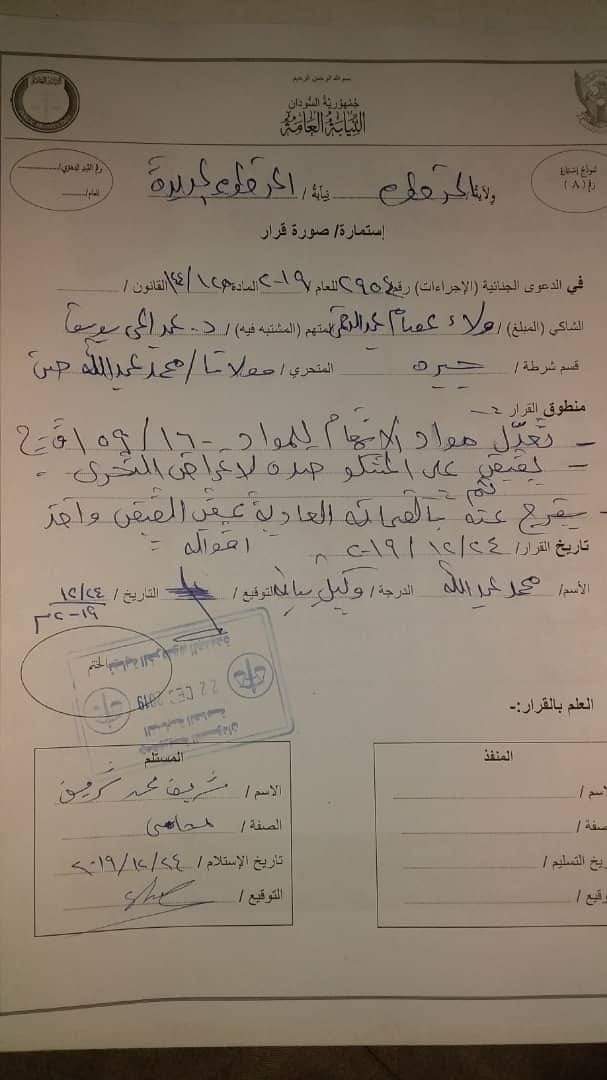 بسم الله الرحمن الرحيم
جمهورية السودان
النيابة العامة
نموذج إستمارة
رقم (٨)
ولاية/ الخرطوم نيابة/ الخرطوم الجديدة
رقم القيد الدعوى/
لعام/
إستمارة/ صورة قرار
في الدعوى الجنائية (الإجراءات) رقم ٢٩٥٤ للعام ٢٠١٩ المادة ١٤٤/١٢٥ القانون /
الشاكي (المبلغ) / ولاء عصام عبدالرحمن المتهم (المشتبه فيه) / د. عبدالحي يوسف
قسم شرطة / جبره المتحري / مولانا / محمد عبدالله
منطوق القرار :-
- تعدل مواد الإتهام للمواد - ١٦ / ١٥٩ ق ج
- يقبض على المشكو ضده لاغراض التحرى
ثم
- يفرج عنه بالضمانه العادية عقب القبض واخذ
اقواله
تاريخ القرار/ ٢٠١٩/١٢/٢٤ م
الأسم/ محمد عبدالله الدرجة / وكيل نيابة التوقيع / التاريخ / ١٢/٢٤
٢٠١٩ م
الختم
22 DEC 2019
العلم بالقرار:-
المنفذ
الاسم /
الصفة /
تاريخ التسليم /
التوقيع /
المستلم
الاسم / شريف محمد
الصفة / محامى
تاريخ الإستلام / ٢٠١٩/١٢/٢٤
التوقيع /